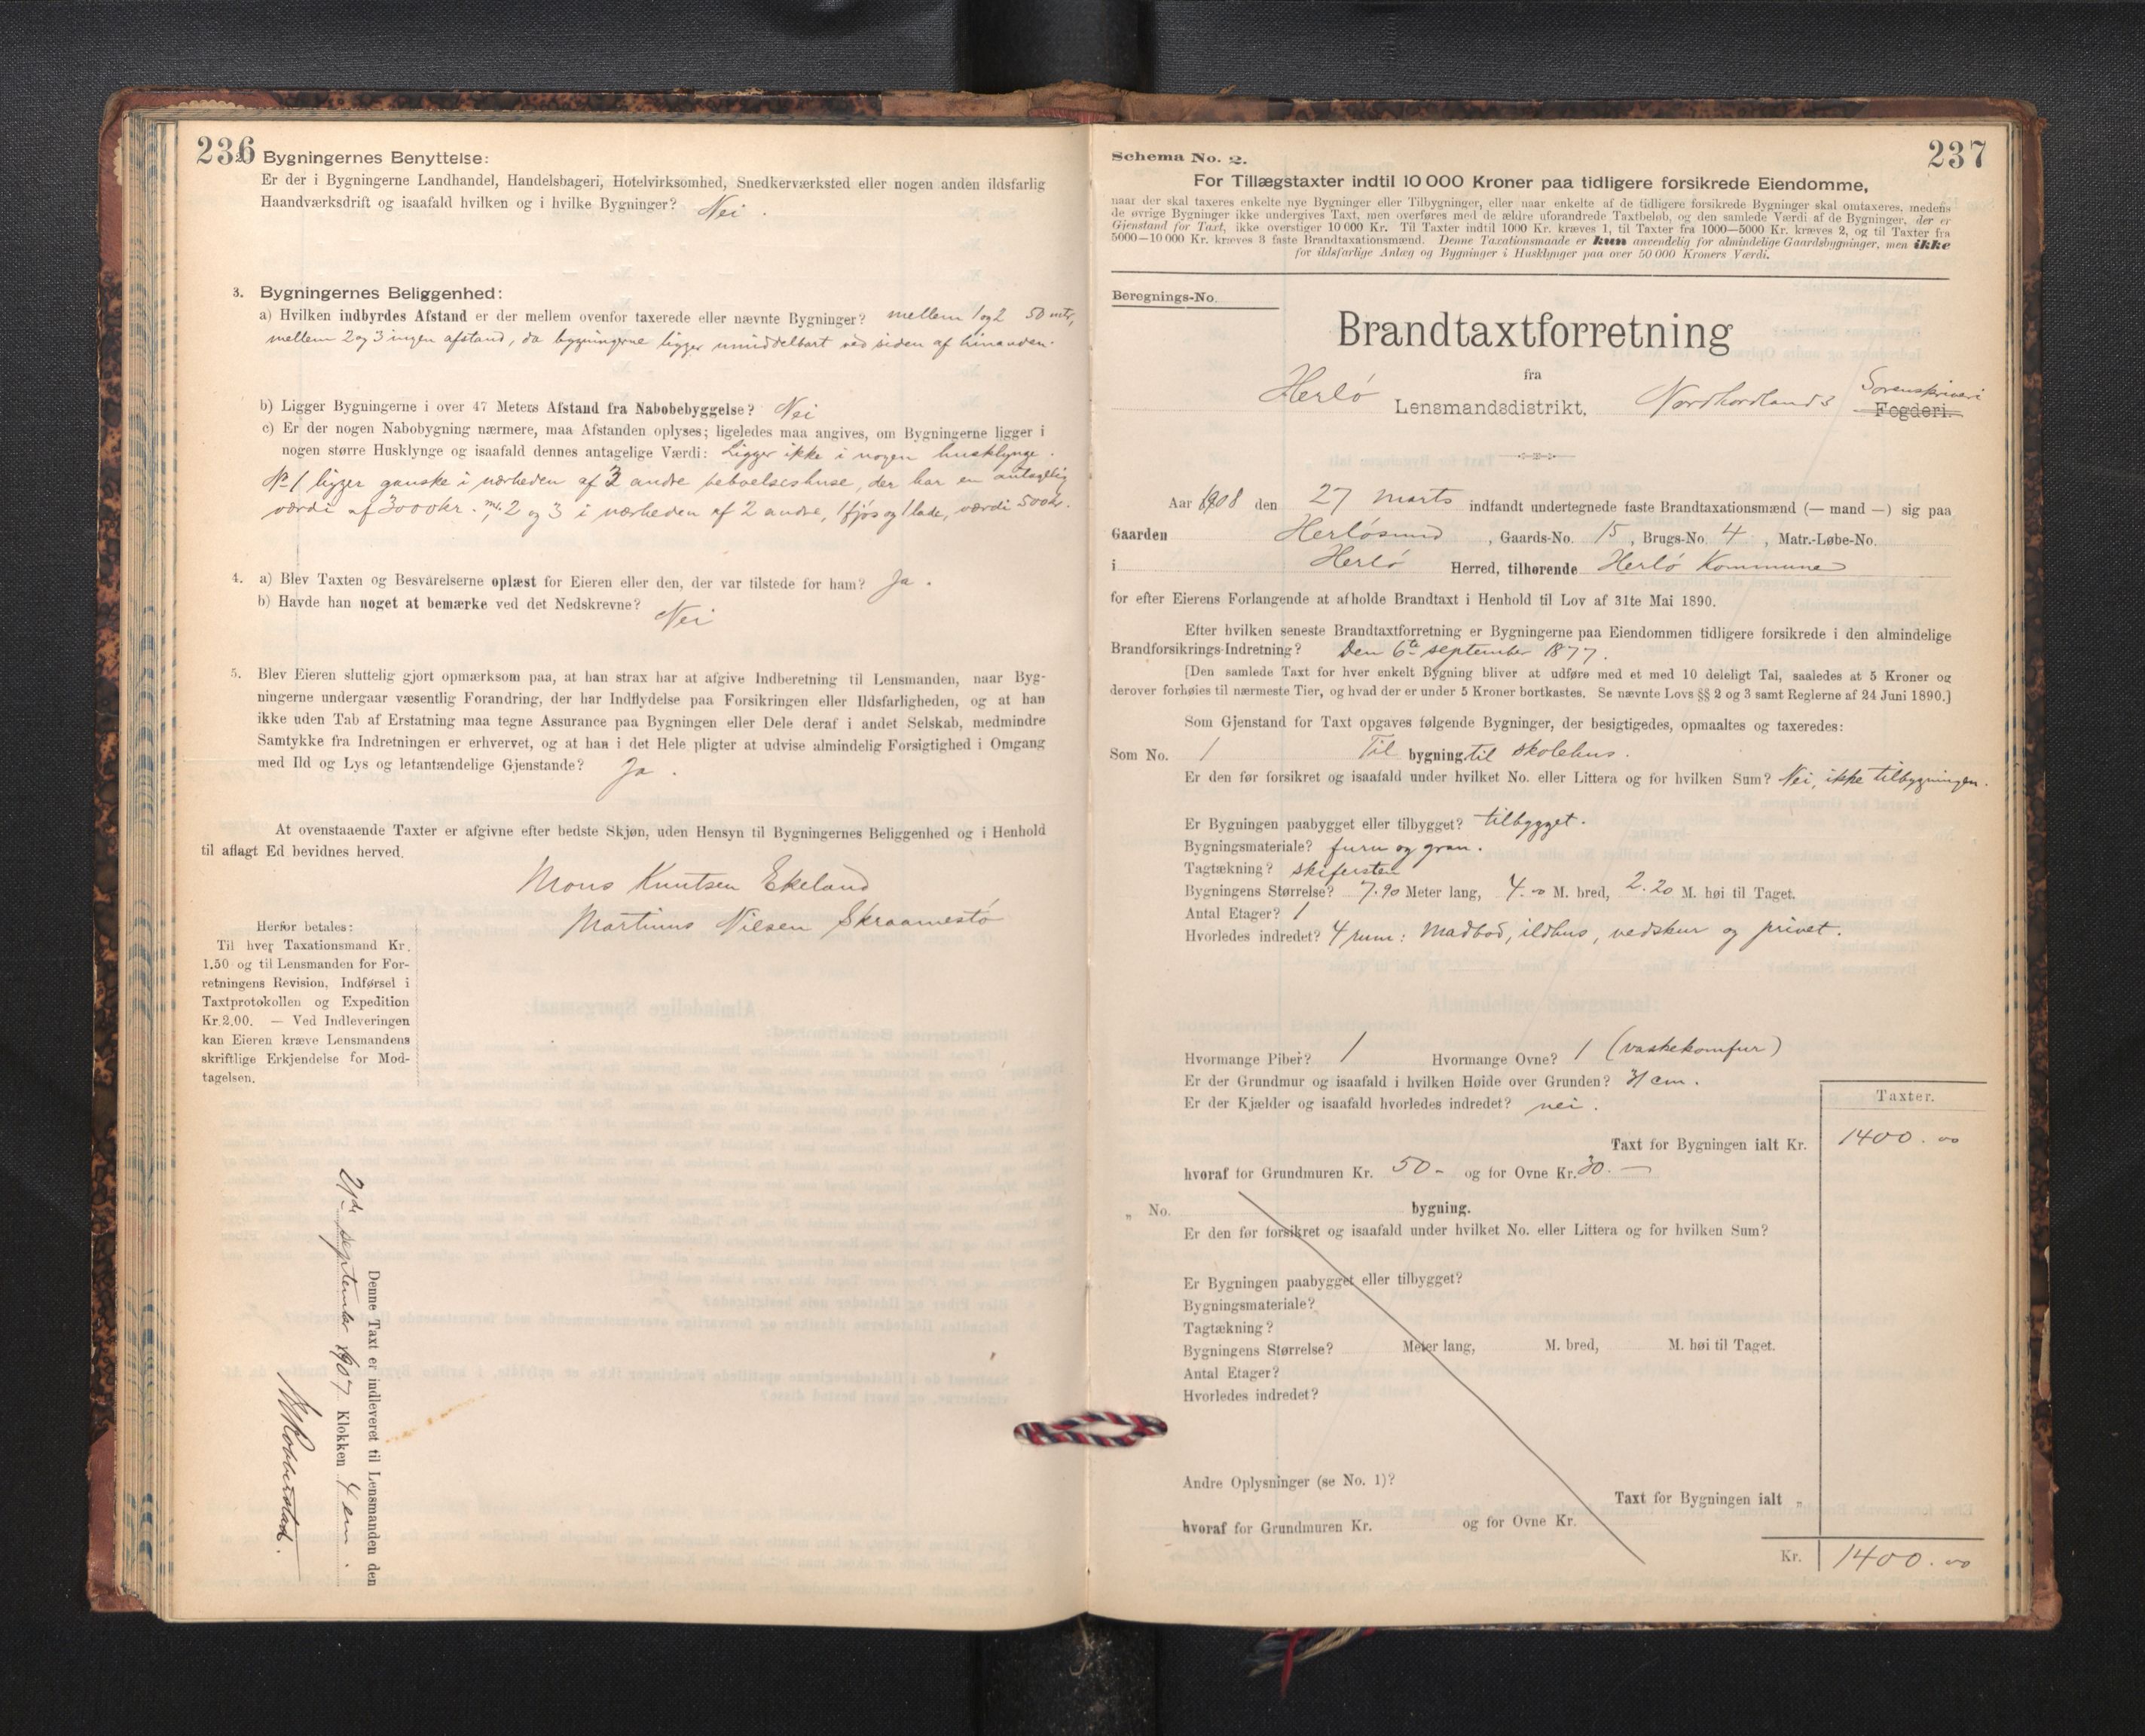 236
2. Bygningernes Benyttelse:
Er der i Bygningerne Landhandel, Handelsbageri, Hotelvirksomhed, Snedkerværksted eller nogen anden ildsfarlig
Haandværksdrift og isaafald hvilken og i hvilke Bygninger? Nei.
3. Bygningernes Beliggenhed:
a) Hvilken indbyrdes Afstand er der mellem ovenfor taxerede eller nævnte Bygninger? mellem 1 og 2 50 mtr,
mellem 2 og 3 ingen afstand, da bygningerne ligger umiddelbart ved siden af hinanden.
b) Ligger Bygningerne i over 47 Meters Afstand fra Nabobebyggelse? Nei
c) Er der nogen Nabobygning nærmere, maa Afstanden oplyses; ligeledes maa angives, om Bygningerne ligger i
nogen større Husklynge og isaafald dennes antagelige Værdi: Ligger ikke i nogen husklynge.
No 1 ligger ganske i nærheden af 3 andre beboelseshuse, der har en antagelig
værdi af 3000 kr. 2 og 3 i nærheden af 2 andre, 1 fjøs og 1 lade, værdi 500 kr.
4. a) Blev Taxten og Besvarelserne oplæst for Eieren eller den, der var tilstede for ham? Ja.
b) Havde han noget at bemærke ved det Nedskrevne? Nei
5. Blev Eieren sluttelig gjort opmærksom paa, at han strax har at afgive Indberetning til Lensmanden, naar Byg-
ningerne undergaar væsentlig Forandring, der har Indflydelse paa Forsikringen eller Ildsfarligheden, og at han
ikke uden Tab af Erstatning maa tegne Assurance paa Bygningen eller Dele deraf i andet Selskab, medmindre
Samtykke fra Indretningen er erhvervet, og at han i det Hele pligter at udvise almindelig Forsigtighed i Omgang
med Ild og Lys og letantændelige Gjenstande? Ja.
At ovenstaaende Taxter er afgivne efter bedste Skjøn, uden Hensyn til Bygningernes Beliggenhed og i Henhold
til aflagt Ed bevidnes herved.
Mons Knutsen Ekeland
Martinus Nilsen Skraamestø
Herfor betales:
Til hver Taxationsmand Kr.
1.50 og til Lensmanden for For-
retningens Revision, Indførsel i
Taxtprotokollen og Expedition
Kr. 2.00. — Ved Indleveringen
kan Eieren kræve Lensmandens
skriftlige Erkjendelse for Mod-
tagelsen.
Denne Taxt er indleveret til Lensmanden den
21de september 1907 Klokken 4 em.
237
Schema No. 2.
For Tillægstaxter indtil 10 000 Kroner paa tidligere forsikrede Eiendomme,
naar der skal taxeres enkelte nye Bygninger eller Tilbygninger, eller naar enkelte af de tidligere forsikrede Bygninger skal omtaxeres, medens
de øvrige Bygninger ikke undergives Taxt, men overføres med de ældre uforandrede Taxtbeløb, og den samlede Værdi af de Bygninger, der er
Gjenstand for Taxt, ikke overstiger 10 000 Kr. Til Taxter indtil 1000 Kr. kræves 1, til Taxter fra 1000—5000 Kr. kræves 2, og til Taxter fra
5000—10 000 Kr. kræves 3 faste Brandtaxationsmænd. Denne Taxationsmaade er kun anvendelig for almindelige Gaardsbygninger, men ikke
for ildsfarlige Anlæg og Bygninger i Husklynger paa over 50 000 Kroners Værdi.
Beregnings-No.
Brandtaxtforretning
fra
Herlø Lensmandsdistrikt, Nordhordlands Sorenskriveri
Fogderi.
Aar 1908 den 27 marts indfandt undertegnede faste Brandtaxationsmænd (— mand —) sig paa
Gaarden Herløsund, Gaards-No. 15, Brugs-No. 4, Matr.-Løbe-No.
i Herlø Herred, tilhørende Herlø Kommune
for efter Eierens Forlangende at afholde Brandtaxt i Henhold til Lov af 31te Mai 1890.
Efter hvilken seneste Brandtaxtforretning er Bygningerne paa Eiendommen tidligere forsikrede i den almindelige
Brandforsikrings-Indretning? Den 6te september 1877.
[Den samlede Taxt for hver enkelt Bygning bliver at udføre med et med 10 deleligt Tal, saaledes at 5 Kroner og
derover forhøies til nærmeste Tier, og hvad der er under 5 Kroner bortkastes. Se nævnte Lovs §§ 2 og 3 samt Reglerne af 24 Juni 1890.]
Som Gjenstand for Taxt opgaves følgende Bygninger, der besigtigedes, opmaaltes og taxeredes:
Som No. 1 Til bygning til skolehus.
Er den før forsikret og isaafald under hvilket No. eller Littera og for hvilken Sum? Nei, ikke tilbygningen.
Er Bygningen paabygget eller tilbygget? tilbygget.
Bygningsmateriale? furu og gran.
Tagtækning? skifersten
Bygningens Størrelse? 7.90 Meter lang, 4.00 M. bred, 2.20 M. høi til Taget.
Antal Etager? 1
Hvorledes indredet? 4 rum: Madbod, ildhus, vedskur og privet.
Hvormange Piber? 1 Hvormange Ovne? 1 (vaskekomfur)
Er der Grundmur og isaafald i hvilken Høide over Grunden? 31 cm.
Er der Kjælder og isaafald hvorledes indredet? nei.
Taxter.
Taxt for Bygningen ialt Kr. 1400.00
hvoraf for Grundmuren Kr. 50 - og for Ovne Kr. 30. —
„ No. bygning.
Er den før forsikret og isaafald under hvilket No. eller Littera og for hvilken Sum?
Er Bygningen paabygget eller tilbygget?
Bygningsmateriale?
Tagtækning?
Bygningens Størrelse? Meter lang, M. bred, M. høi til Taget.
Antal Etager?
Hvorledes indredet?
Andre Oplysninger (se No. 1)?
Taxt for Bygningen ialt „
hvoraf for Grundmuren Kr. og for Ovne Kr.
Kr. 1400.00